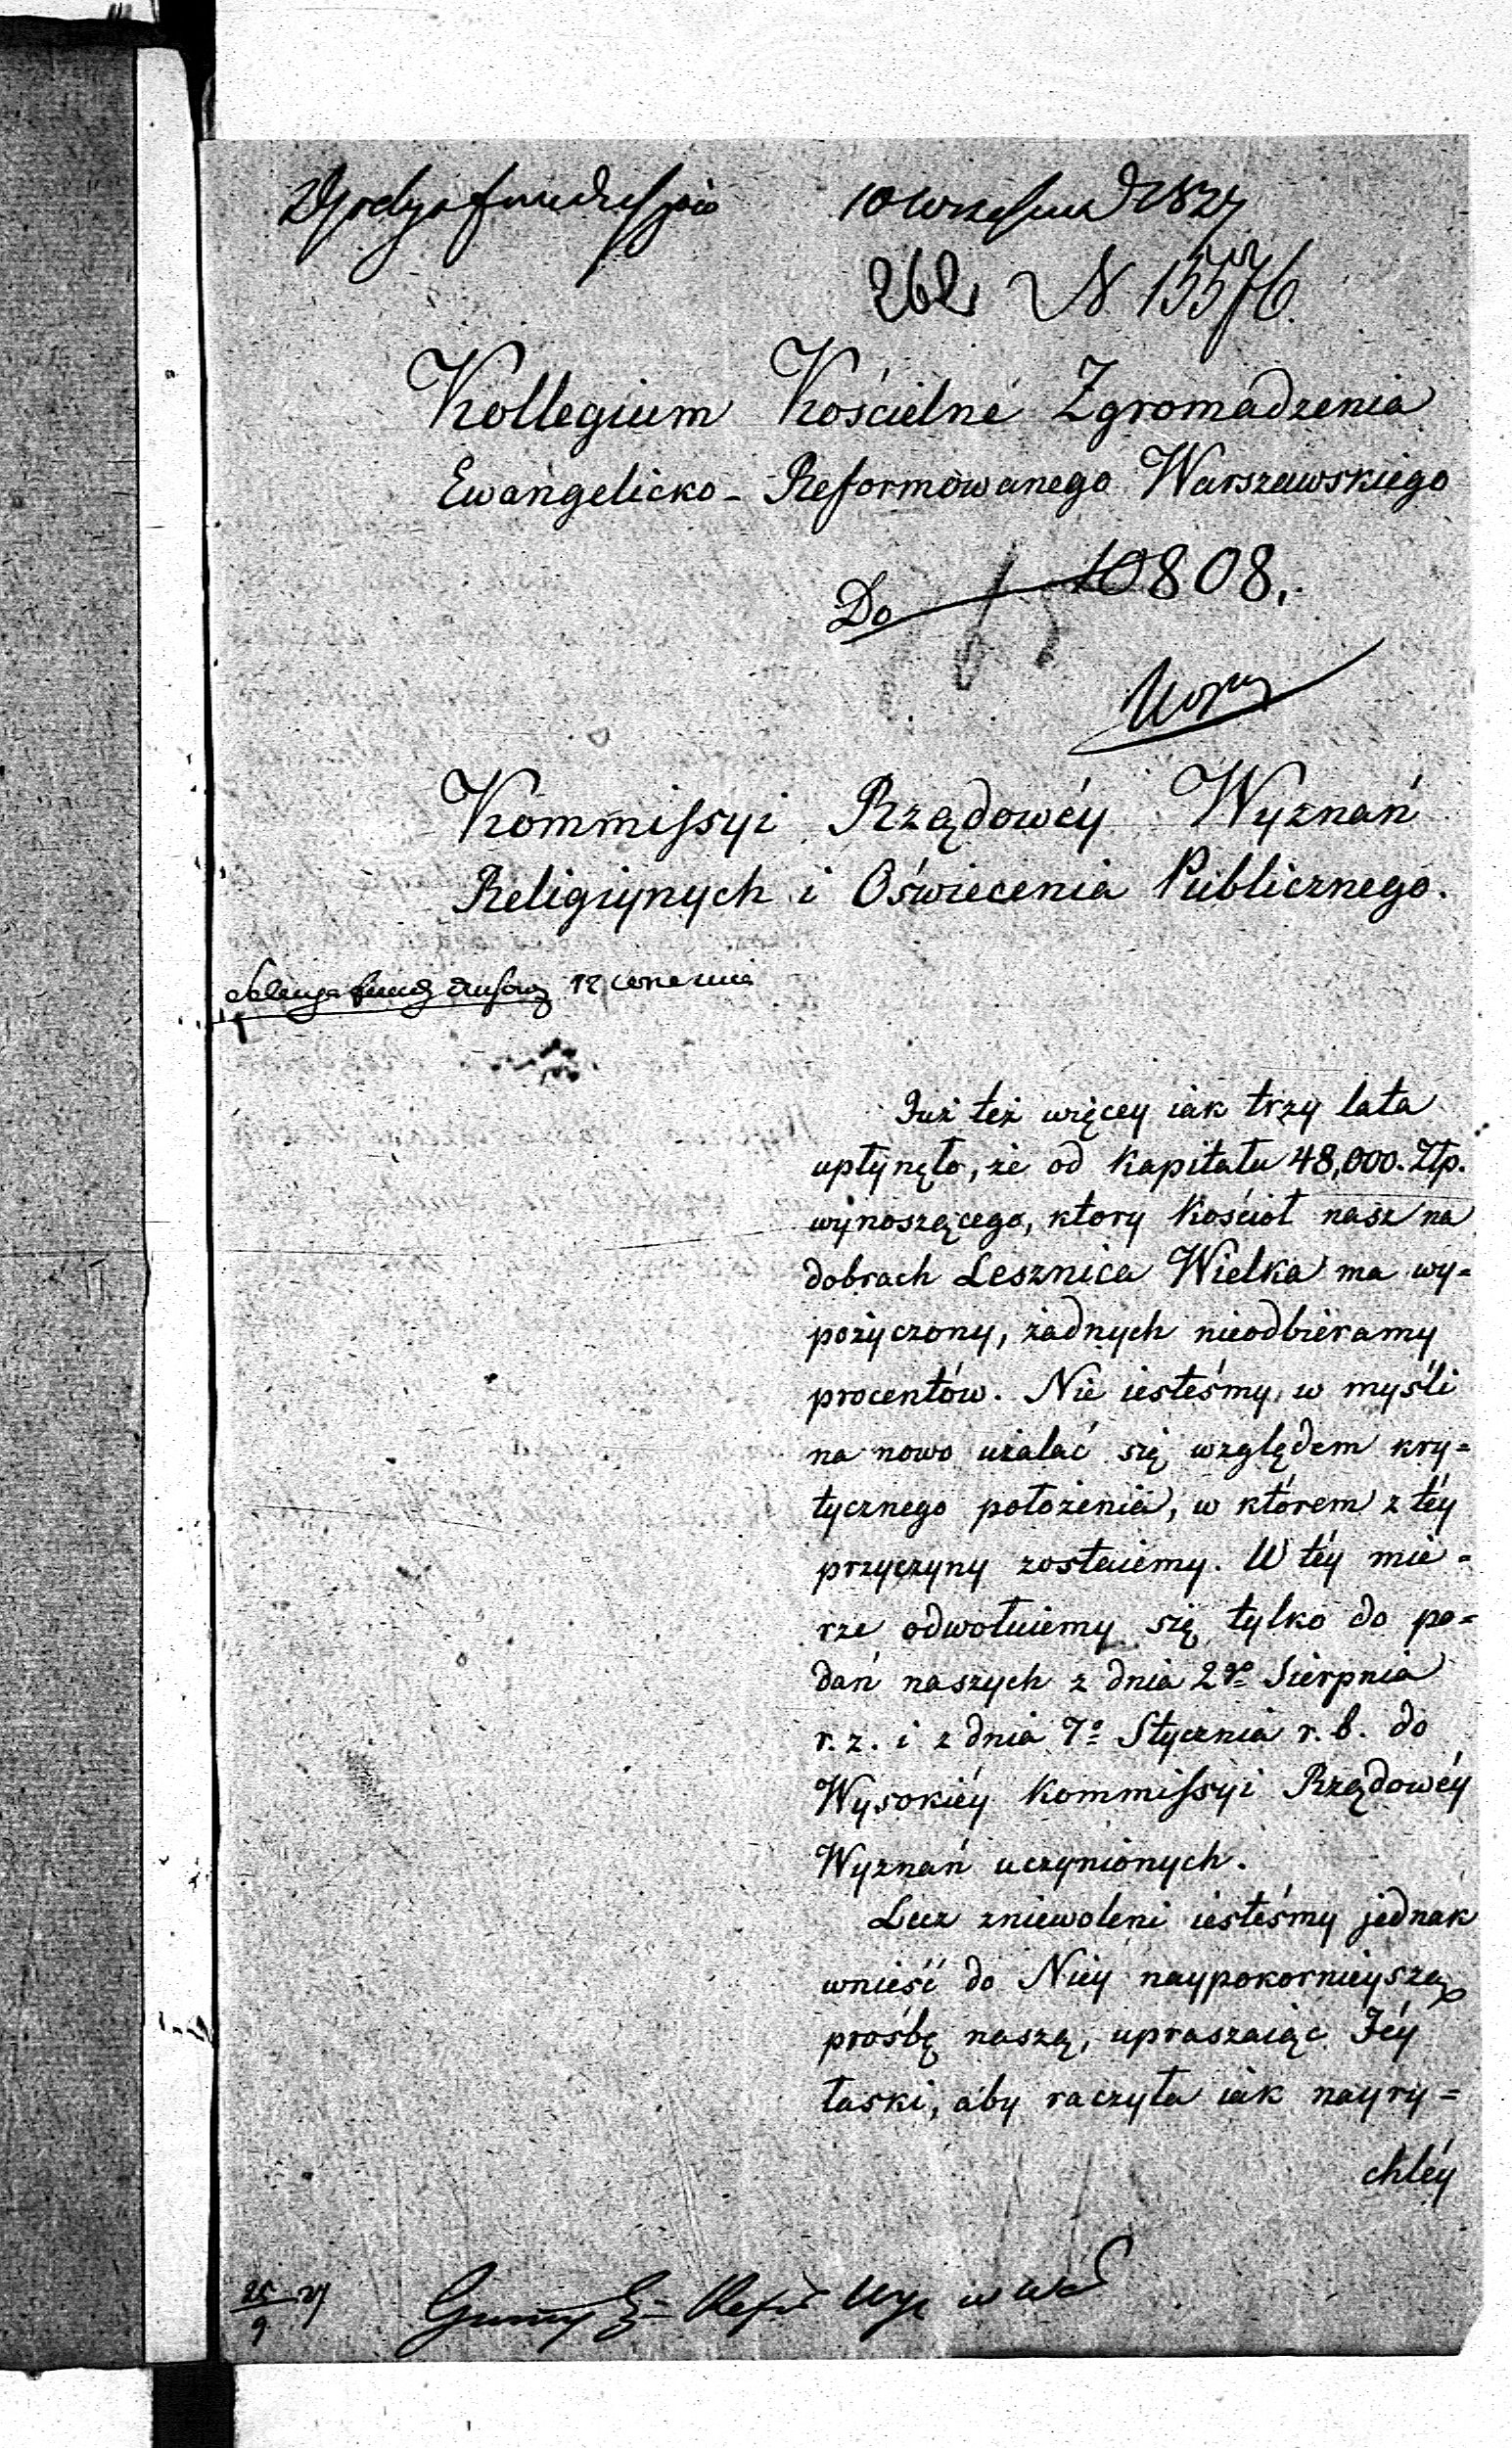 10 Września 1827
262 N. 15576.
Kollegium Kościelné Zgromadzenia
Ewangelicko- Reformowanego Warszawskiego
Do 10808,
Kommissyi Rządowéy Wyznań
Religiynych i Oświecenia Publicznego.
12 wrzesnia
Już też więcey iak trzy lata
upłynęło, że od Kapitału 48,000. Złp.
wynoszącego, ktory Kościół nasz na
dobrach Lesznica Wielka ma wy=
pożyczony, żadnych nieodbieramy
procentów. Nie iesteśmy w myśli
na nowo użalać się względem kry=
tycznego położenia, w którem z téy
przyczyny zostaiemy. W téy mie=
rze odwołuiemy się tylko do po=
dań naszych z dnia 2go Sierpnia
r. z. i z dnia 7o Stycznia r. b. do
Wysokiéy Kommissyi Rządowéy
Wyznań uczynionych.
Lecz zniewoleni iesteśmy jednak
wnieść do Niéy naypokornieyszą
prośbę naszą, upraszaiąc Jéy
łaski, aby raczyła iak nayry=
chléy